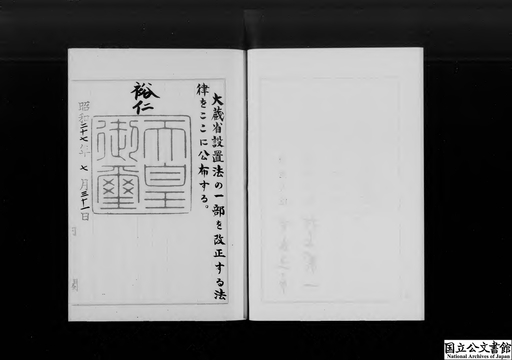 大蔵省設置法の一部を改正する法
律をここに公布する。
裕仁
天皇
御璽
昭和二十七年七月三十一日
国立公文書館
National Archives of Japan